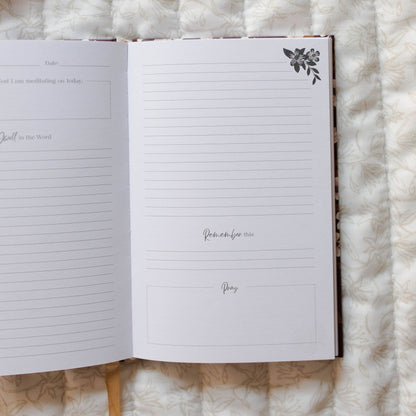 Date
I am meditating on today.
Dwell in the Word
Remember this
Pray